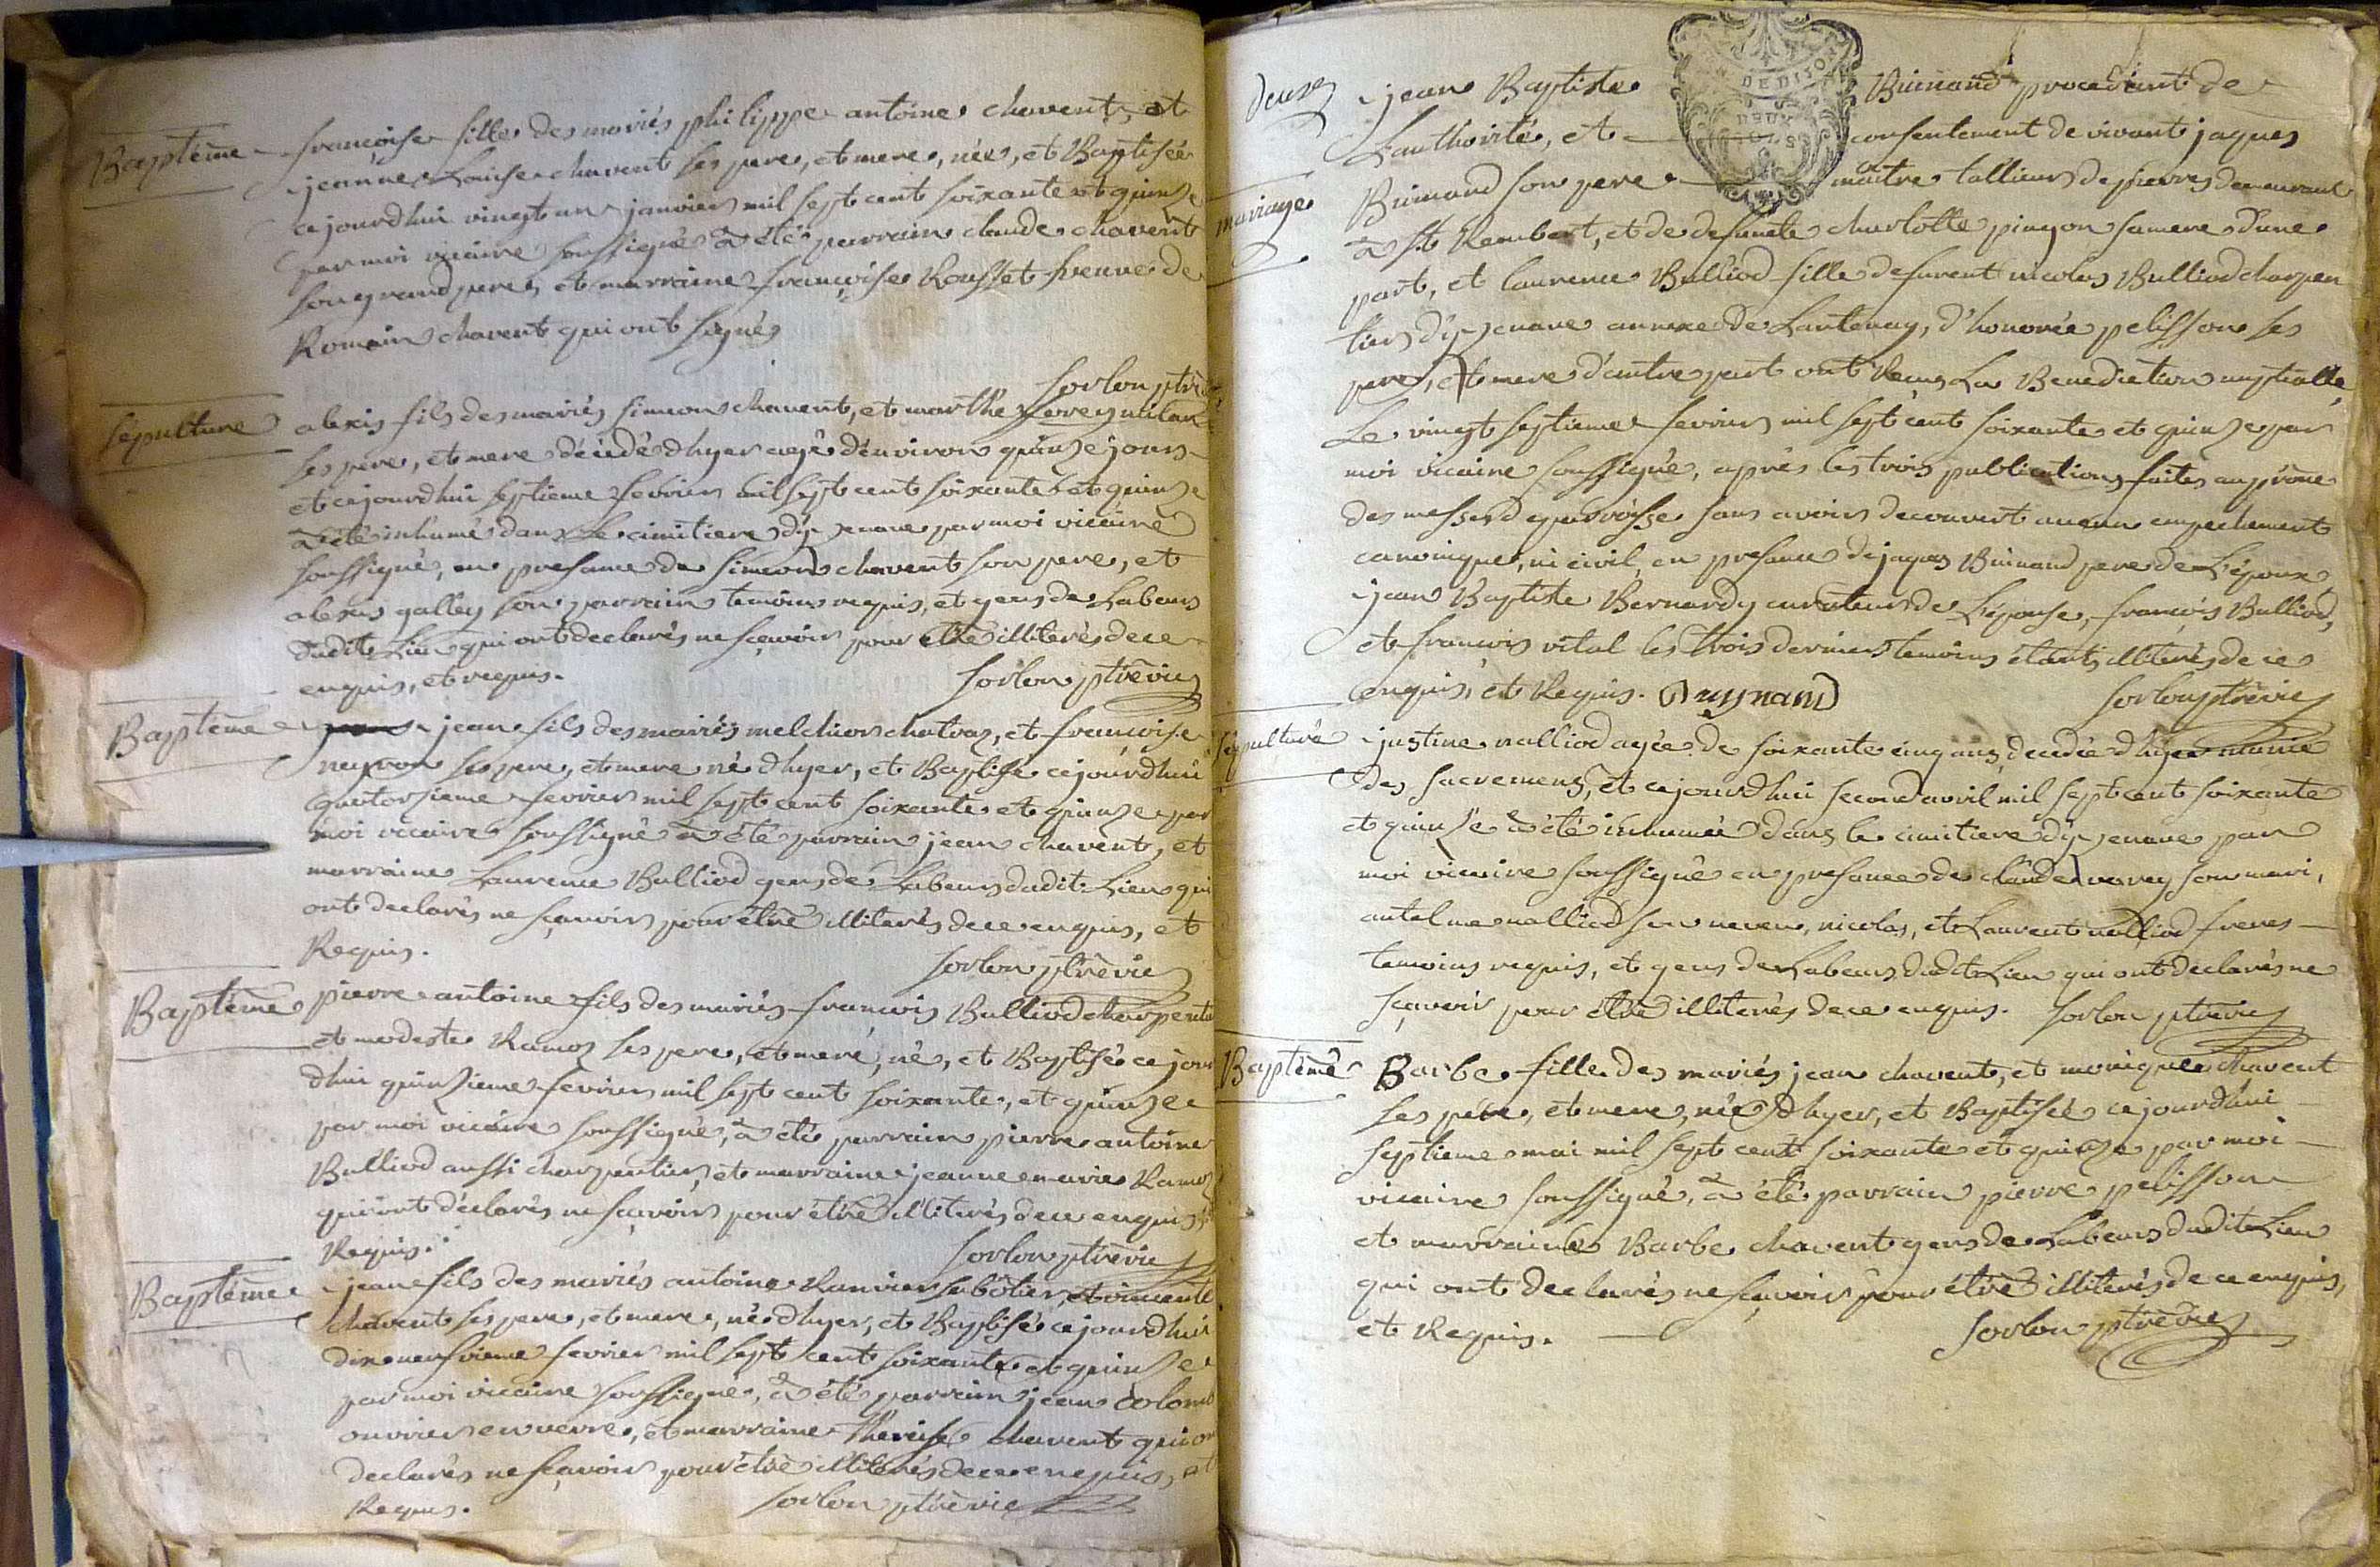 Baptême françoise fille des mariés philippe antoine chavent, et
jeanne Louise chavent ses pere, et mere, née, et Baptisée
cejourdhui vingt un janvier mil sept cent soixante et quinze
par moi vicaire soussigné à été parrain claude chavent
son grand pere, et marraine françoise Rousset veuve de
Romain chavent qui ont signés
sorlon ptre
sépulture alexis fils des mariés simeon chavent, et marthe
ses pere, et mere décédé dhyer agé d'environ quinze jours
et cejourdhui septieme fevrier mil sept cent soixante et quinze
à été inhumé dans le cimitiere dy jenave par moi vicaire
soussigné, en presance de simeon chavent son pere, et
alexis galley son parrain temoins requis, et gens de Labeur
dudit Lieu qui ont declarés ne sçavoir pour être illiterés de ce
enquis, et requis. sorlon ptre vic
Baptême jean fils des mariés melchior chatraz, et francoise
neyron ses pere, et mere né dhyer, et Baptisé cejourdhui
quatorzieme fevrier mil sept cent soixante et quinze par
moi vicaire soussigné à été parrain jean chavent, et
marraine Laurence Bulliod gens de Labeur dudit Lieu qui
ont declarés ne sçavoir pour être illiterés de ce enquis, et
Requis. sorlon ptre vic
Baptême pierre antoine fils des mariés francois Bulliod charpentier
et modeste Ramoz ses pere, et mere, né, et Baptisé ce jour
dhui quinzieme fevrier mil sept cent soixante, et quinze
par moi vicaire soussigné, à été parrain pierre antoine
Bulliod aussi charpentier, et marraine jeanne marie Ramoz
qui ont déclarés ne sçavoir pour être illiterés de ce enquis, et
Requis. sorlon ptre vic
Baptême jean fils des mariés antoine Ranvier sabôtier, et vincente
chavent ses pere, et mere, né dhyer, et Baptisé cejourdhui
dixneuvieme fevrier mil sept cent soixante et quinze
par moi vicaire soussigné, à été parrain jean colomb
ouvrier en verre, et marraine Therese chavent qui on
declarés ne sçavoir pour être illiterés de ce enquis, et
Requis. sorlon ptre vic
deuze
jean Baptiste Buinand procedant de
L'authorité, et consentement de vivant jaques
mariage Buinand son pere maitre tallieur de pierres demeurant
à st Rembert, et de defunte charlotte pingon sa mere d'une
part, et laurence Bulliod fille de furent nicolas Bulliod charpen
tier dy jenave annexe de Lantenay, d'honorée pelisson ses
pere, et mere d'autre part ont Reçus La Benediction nuptialle
Le vingt septieme fevrier mil sept cent soixante et quinze par
moi vicaire soussigné, après les trois publications faites au prône
des messes de parroisse sans avoir decouvert aucun empechement
canonique, ni civil, en presance de jaques Buinand pere de L'époux
jean Baptiste Bernardy curateur de L'epouse, francois Bulliod,
et francois vital les trois derniers temoins étants illiterés de ce
enquis, et Requis. Buynand sorlon ptre vic
sépulture justine nalliod agée de soixante cinq ans, decedée dhyer munie
des sacremens, et cejourdhui second avril mil sept cent soixante
et quinze à été inhumée dans le cimitiere dy jenave par
moi vicaire soussigné en presance de claude varey son mari,
antelme nalliod son neveu, nicolas, et Laurent nalliod freres
temoins requis, et gens de Labeur dudit Lieu qui ont declarés ne
sçavoir pour être illiterés de ce enquis. sorlon ptre vic
Baptême Barbe fille des mariés jean chavent, et monique chavent
ses pere, et mere, née dhyer, et Baptisée cejourdhui
septieme mai mil sept cent soixante et quinze par moi
vicaire soussigné, à été parrain pierre pelisson
et marraine Barbe chavent gens de Labeur dudit Lieu
qui ont declarés ne sçavoir pour être illiterés de ce enquis,
et Requis. sorlon ptre vic
DE DIJON
DEUX
SOLS